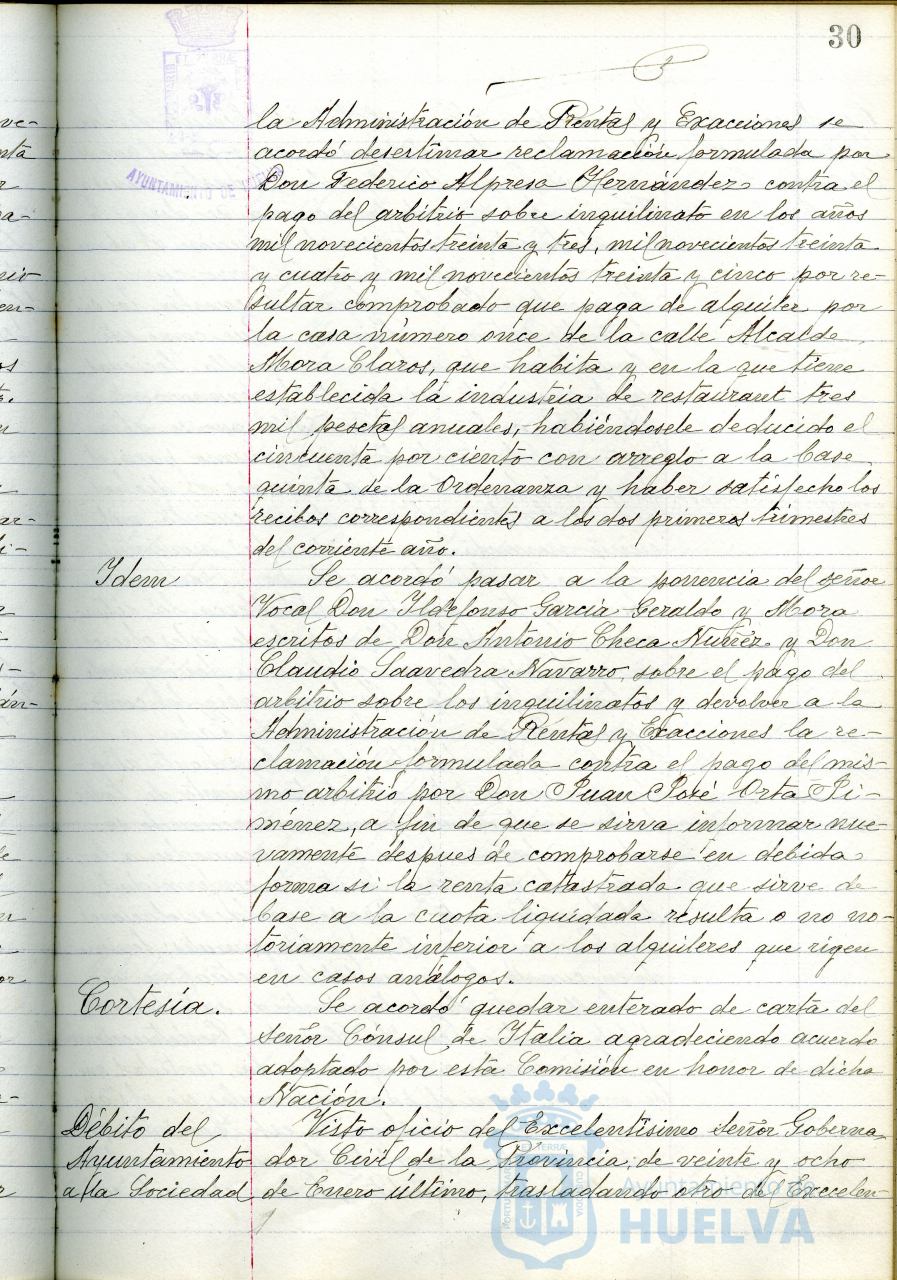 30
AYUNTAMIENTO DE
la Administración de Rentas y Exacciones se
acordó desestimar reclamación formulada por
Don Federico Alpresa Hernández contra el
pago del arbitrio sobre inquilinato en los años
mil novecientos treinta y tres, mil novecientos treinta
y cuatro y mil novecientos treinta y cinco por re-
sultar comprobado que paga de alquiler por
la casa número once de la calle Alcalde
Mora Claros, que habita y en la que tiene
establecida la industria de restaurant tres
mil pesetas anuales, habiéndosele deducido el
cincuenta por ciento con arreglo a la base
quinta de la Ordenanza y haber satisfecho los
recibos correspondientes a los dos primeros trimestres
del corriente año.
Idem
Se acordó pasar a la ponencia del señor
Vocal Don Ildefonso García Geraldo y Mora
escritos de Don Antonio Checa Núñez y Don
Claudio Saavedra Navarro, sobre el pago del
arbitrio sobre los inquilinatos y devolver a la
Administración de Rentas y Exacciones la re-
clamación formulada contra el pago del mis-
mo arbitrio por Don Juan José Orta Ji-
ménez, a fin de que se sirva informar nue-
vamente despues de comprobarse en debida
forma si la renta catastrada que sirve de
base a la cuota liquidada resulta o no no-
toriamente inferior a los alquileres que rigen
en casos análogos.
Cortesía.
Se acordó quedar enterado de carta del
señor Cónsul de Italia agradeciendo acuerdo
adoptado por esta Comisión en honor de dicha
Nación.
Débito del
Ayuntamiento
a la Sociedad
Visto oficio del Excelentísimo señor Goberna-
dor Civil de la Provincia, de veinte y ocho
de Enero último, trasladando otro del Excelen-
Ayuntamiento de
HUELVA